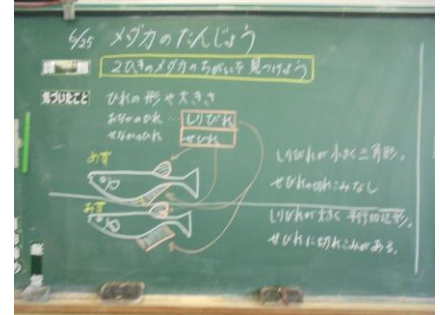 6/25 メダカのたんじょう
2ひきのメダカのちがいを見つけよう
気づいたこと ひれの形や大きさ
おなかのひれ…しりびれ
せなかのひれ せびれ
めす
しりびれが小さく三角形。
せびれの切れこみなし
おす
しりびれが大きく平行四辺形。
せびれに切れこみがある。